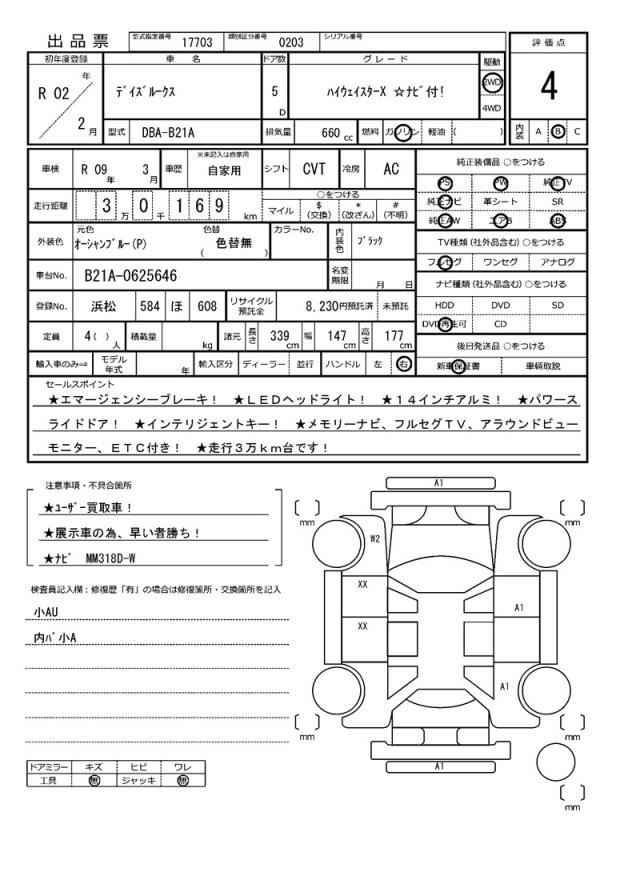 出品票 型式指定番号 17703 類別区分番号 0203 シリアル番号
評価点
初年度登録 車名 ドア数 グレード 駆動
R 02 年 2 月
ﾃﾞｲｽﾞﾙｰｸｽ 5 D ﾊｲｳｪｲｽﾀｰX ☆ﾅﾋﾞ付! 2WD 4WD
4
型式 DBA-B21A 排気量 660 cc 燃料 ガソリン 軽油 ( )
内装 A B C
車検 R 09 年 3 月 車歴 ※未記入は自家用 自家用 シフト CVT 冷房 AC
純正装備品 ○をつける
PS PW 純正TV
純正ナビ 革シート SR
純正AW エアB ABS
走行距離 3 万 0 千 1 6 9 km
○をつける
マイル $ (交換) * (改ざん) # (不明)
TV種類(社外品含む)○をつける
フルセグ ワンセグ アナログ
外装色 元色 ｵｰｼｬﾝﾌﾞﾙｰ(P) 色替 色替無 ( ) カラーNo. 内装色 ﾌﾞﾗｯｸ
車台No. B21A-0625646 名変期限 月 日
ナビ種類(社外品含む)○をつける
HDD DVD SD
DVD再生可 CD
登録No. 浜松 584 ほ 608 リサイクル預託金 8,230円預託済 未預託
定員 4( ) 人 積載量 kg 諸元 長さ 339 cm 幅 147 cm 高さ 177 cm
後日発送品 ○をつける
新車保証書 車輌取説
輸入車のみ⇒ モデル年式 年 輸入区分 ディーラー 並行 ハンドル 左 右
セールスポイント
★エマージェンシーブレーキ! ★LEDヘッドライト! ★14インチアルミ! ★パワース
ライドドア! ★インテリジェントキー! ★メモリーナビ、フルセグTV、アラウンドビュー
モニター、ETC付き! ★走行3万km台です!
注意事項・不具合箇所
★ﾕｰｻﾞｰ買取車!
★展示車の為、早い者勝ち!
★ﾅﾋﾞ MM318D-W
検査員記入欄:修復歴「有」の場合は修復箇所・交換箇所を記入
小AU
内ﾊﾞ小A
ドアミラー キズ ヒビ ワレ
工具 無 ジャッキ 無
A1
mm
mm
W2
XX
A1
XX
A1
mm
mm
A1
mm